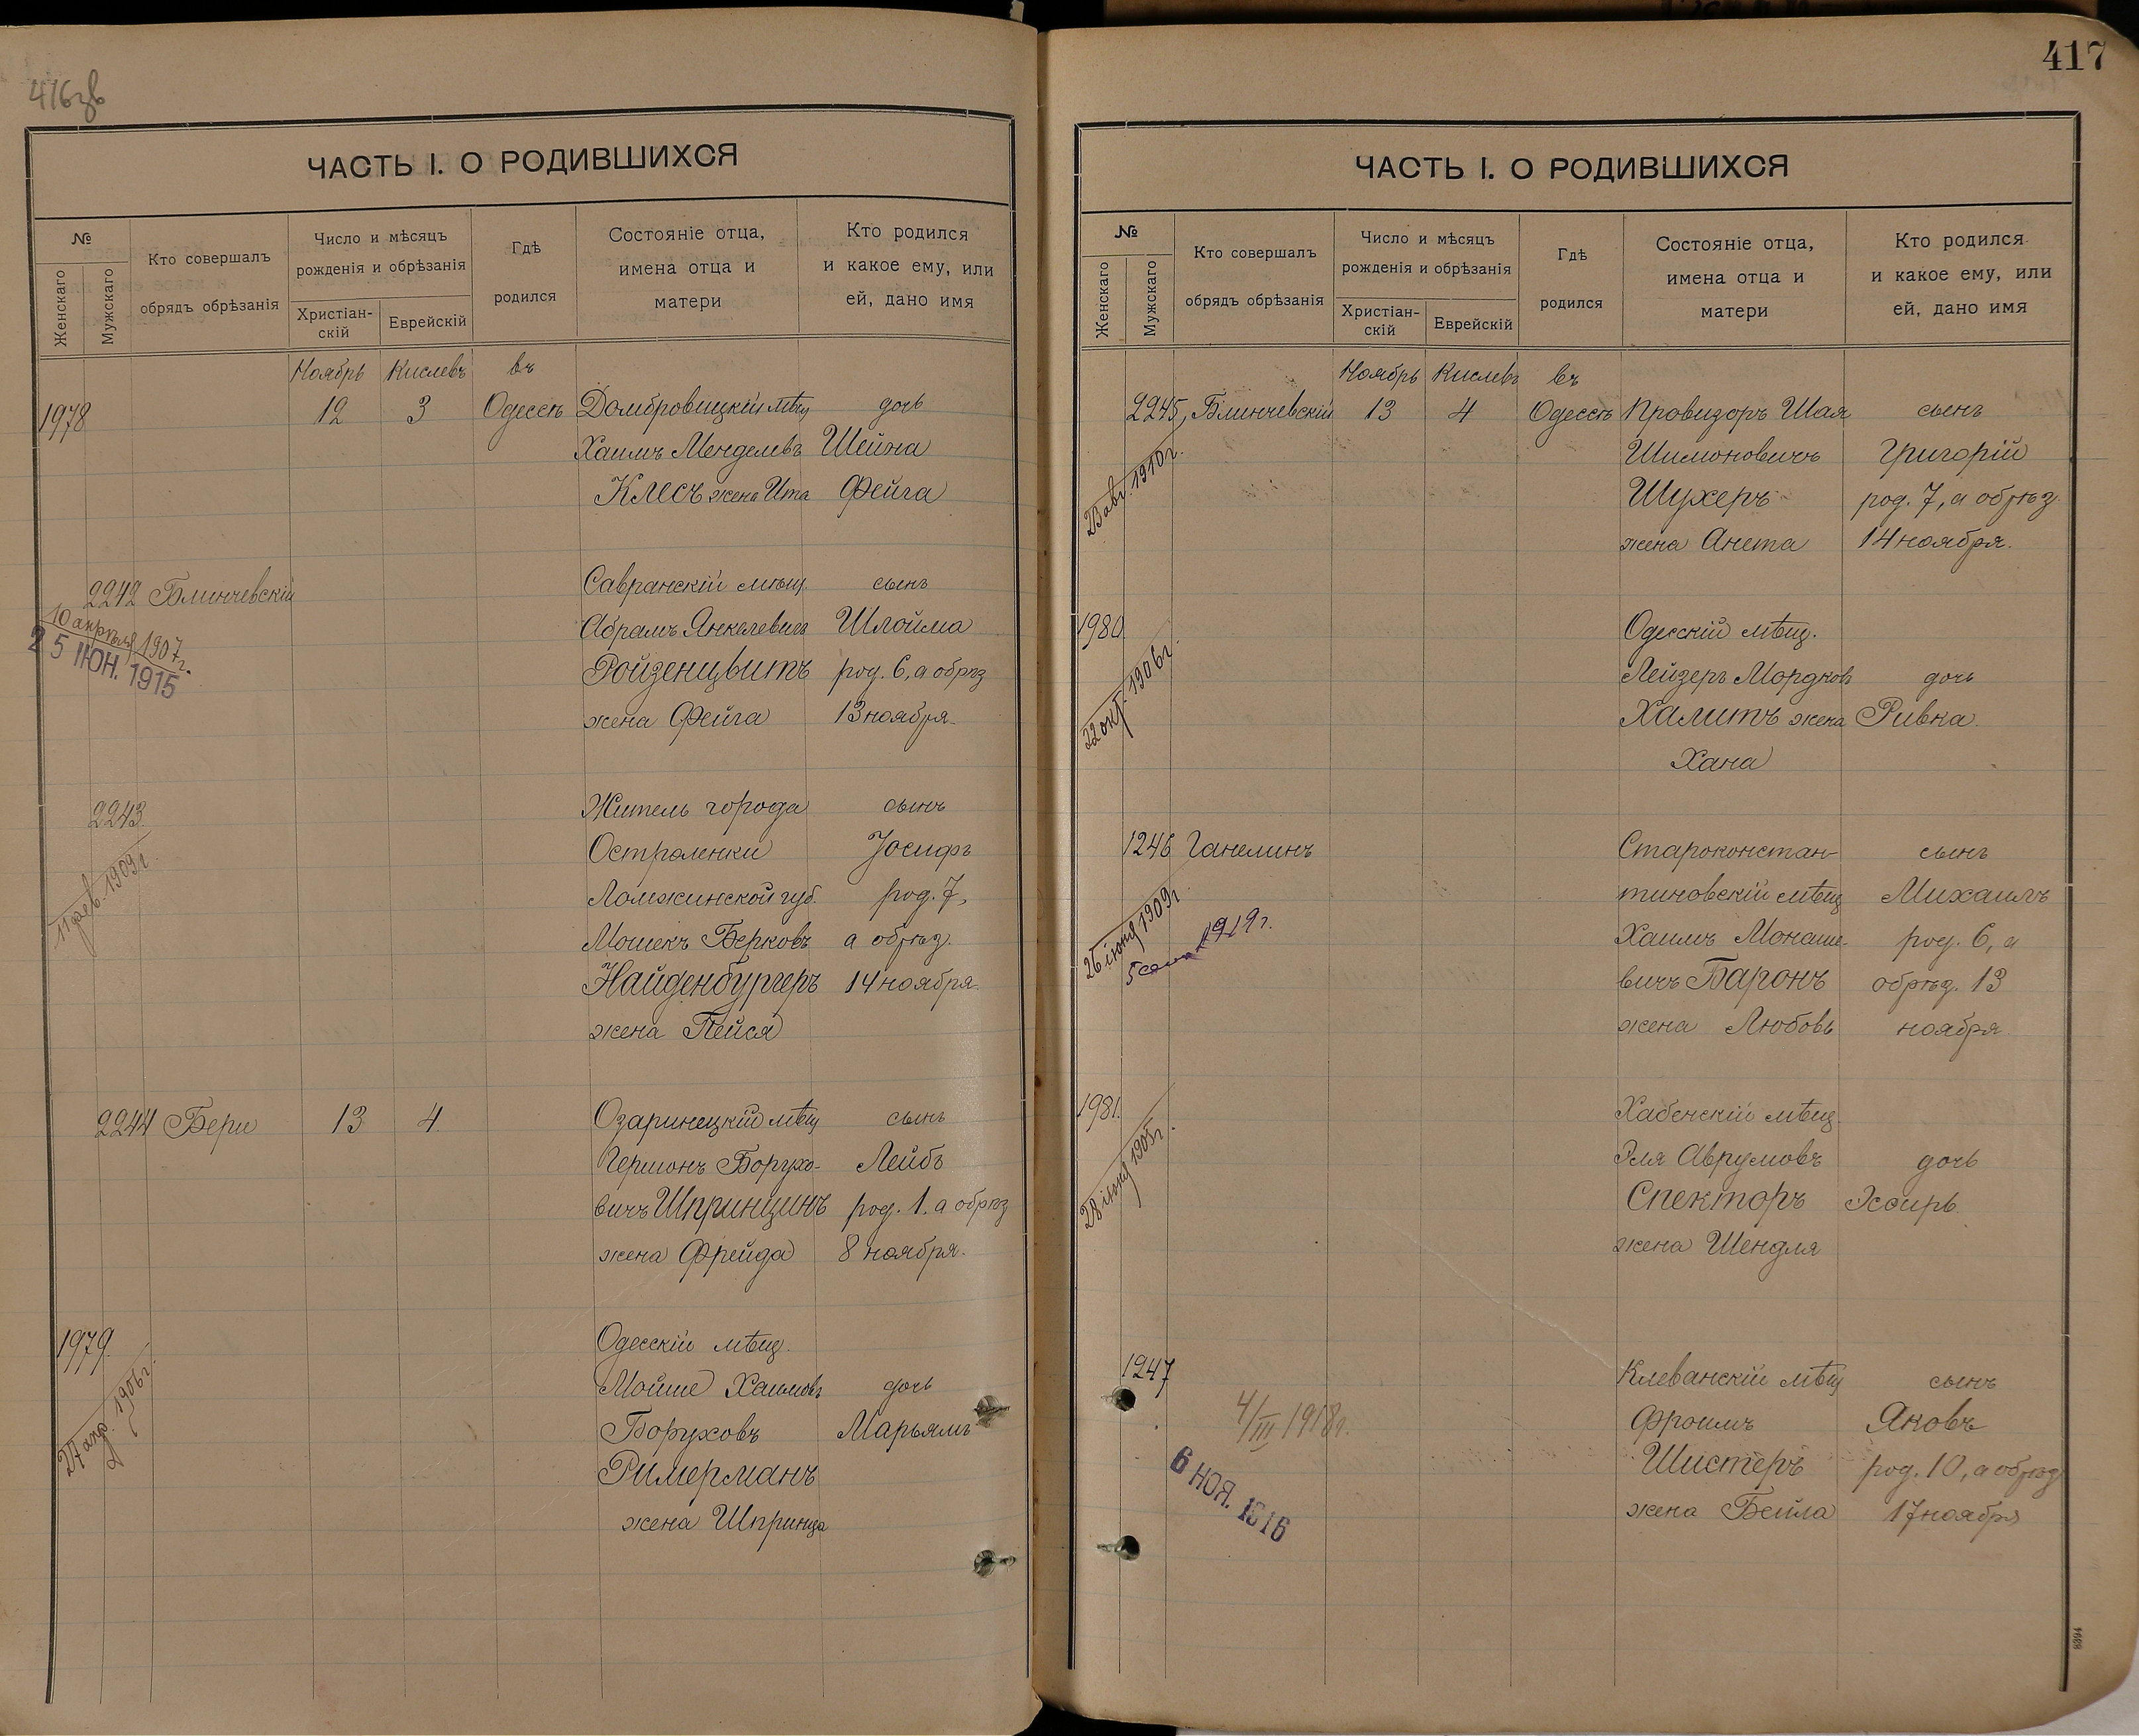 416 зв
ЧАСТЬ I. О РОДИВШИХСЯ
№
Женскаго
Мужскаго
Кто совершалъ
обрядъ обрѣзанія
Число и мѣсяцъ
рожденія и обрѣзанія
Христіан-
скій
Еврейскій
Гдѣ
родился
Состояніе отца,
имена отца и
матери
Кто родился
и какое ему, или
ей, дано имя
Ноябрь Кислевъ въ
1978 12 3 Одессѣ Домбровицкій мѣщ дочь
Хаимъ Менделевъ Шейна
Клесъ жена Ита Фейга
2242 Блинчевскій Савранскій мѣщ. сынъ
10 апрѣля 1907 г.
25 ІЮН. 1915
Абрамъ Янкелевичъ Шлойма
Ройзенцвитъ род. 6, а обрѣз
жена Фейга 13 ноября
2243 Житель города сынъ
11 фев. 1909 г
Остроленки Іосифъ
Ломжинской губ. род. 7,
Мошекъ Берковъ а обрѣз.
Найденбургеръ 14 ноября
жена Пейся
2244 Бери 13 4 Озаринецкій мѣщ сынъ
Гершонъ Борухо- Лейбъ
вичъ Шпринцинъ род. 1. а обрѣз
жена Фрейда 8 ноября.
1979 Одесскій мѣщ.
27 апр. 1906 г.
Мойше Хаимовъ дочь
Боруховъ Марьямъ
Римерманъ
жена Шпринца
417
ЧАСТЬ I. О РОДИВШИХСЯ
№
Женскаго
Мужскаго
Кто совершалъ
обрядъ обрѣзанія
Число и мѣсяцъ
рожденія и обрѣзанія
Христіан-
скій
Еврейскій
Гдѣ
родился
Состояніе отца,
имена отца и
матери
Кто родился
и какое ему, или
ей, дано имя
Ноябрь Кислевъ въ
2245 Блинчевскій 13 4 Одессѣ Провизоръ Шая сынъ
авг. 1910 г.
Шимоновичъ Григорій
Шухеръ род. 7, а обрѣз.
жена Анета 14 ноября.
1980 Одесскій мѣщ.
22 окт. 1906 г.
Лейзеръ Мордков дочь
Халитъ жена Ривка
Хана
1246 Ганелинъ Староконстан- сынъ
26 іюня 1909 г
5 1919 г.
тиновскій мѣщ Михаилъ
Хаимъ Монаше- род. 6, а
вичъ Баронъ обрѣз. 13
жена Любовь ноября
1981. Хабенскій мѣщ.
28 іюня 1905 г.
Эля Аврумовъ дочь
Спекторъ Эсѳирь
жена Шендля
1247 Клеванскій мѣщ сынъ
4/III 1918 г.
6 НОЯ. 1916
Фроимъ Яковъ
Шистеръ род. 10, а обрѣз
жена Бейла 17 ноября
8394